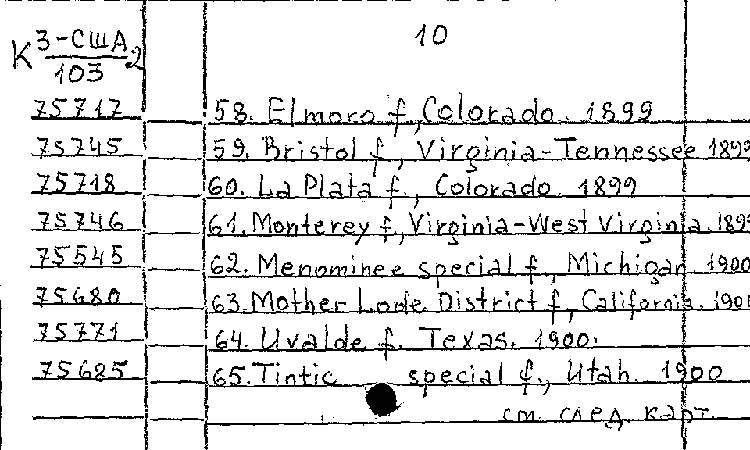 К 3-США/103 2
10
75717 58. Elmoro f., Colorado. 1899
75745 59. Bristol f., Virginia-Tennessee 1899
75718 60. La Plata f., Colorado. 1899
75746 61. Monterey f., Virginia-West Virginia. 1899
75545 62. Menominee special f., Michigan 1900
75680 63. Mother Lode District f., California. 1900
75771 64. Uvalde f. Texas. 1900.
75685 65. Tintic special f., Utah. 1900
см. след. карт.